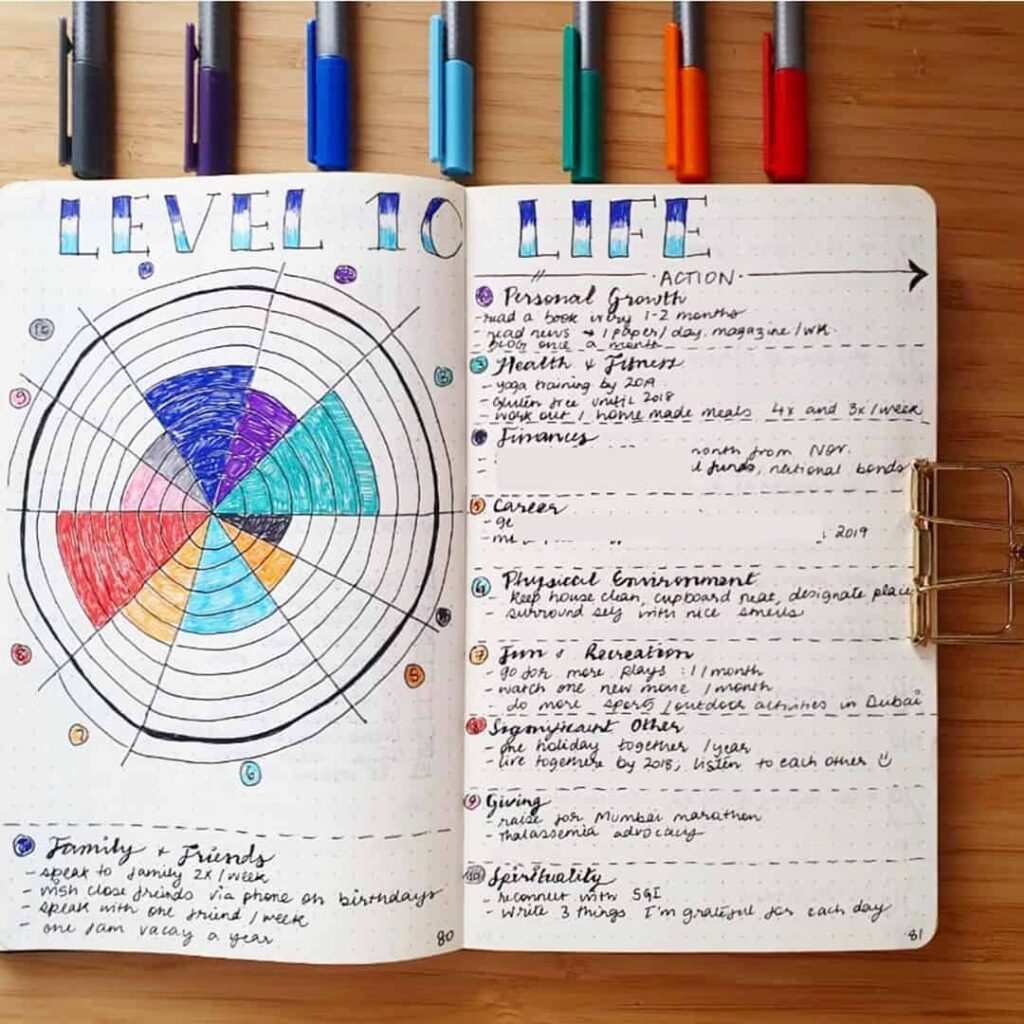 LEVEL 10 LIFE
ACTION
Personal Growth
- read a book every 1-2 months
- read news → 1 paper/day. magazine/wk.
- blog once a month
Health & Fitness
- yoga training by 2019
- gluten free until 2018
- work out / home made meals 4x and 3x/week
Finances
month from NOV.
funds, national bonds
5 Career
- ge
- me
2019
6 Physical Environment
- keep house clean, cupboard neat, designate place
- surround self with nice smells
7 Fun & Recreation
- go for more plays : 1/month
- watch one new movie /month
- do more sports/outdoor activities in Dubai
8 Significant Other
- one holiday together /year
- live together by 2018, listen to each other
9 Giving
- raise for Mumbai marathon
- Thalassemia advocacy
10 Spirituality
- reconnect with SGI
- write 3 things I'm grateful for each day
81
10
9
8
7
6
5
Family & Friends
- speak to family 2x/week
- wish close friends via phone on birthdays
- speak with one friend/week
- one fam vacay a year
80